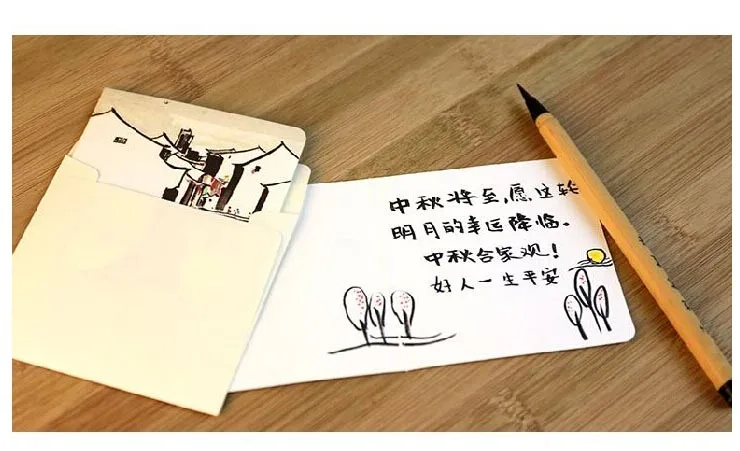 中秋将至,愿这轮
明月的幸运降临.
中秋合家观!
好人一生平安